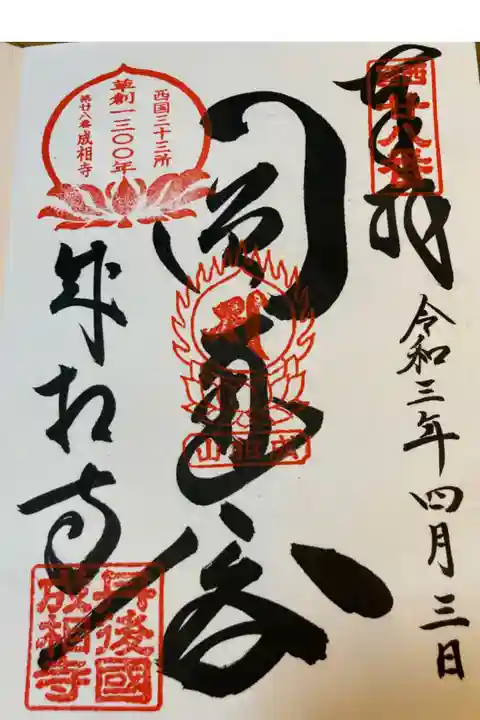 奉拝
西国
廿八番
令和三年四月三日
圓通
成相山
西国三十三所
草創一三〇〇年
第廿八番 成相寺
成相寺
丹後國
成相寺